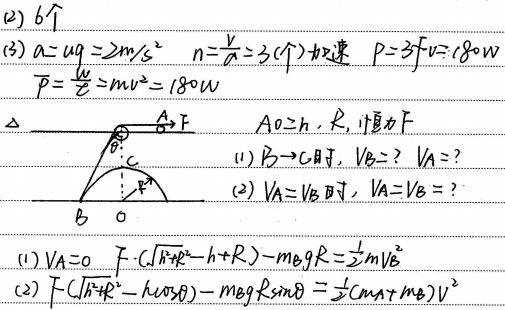 (2) 6个
(3) a=ug=2m/s² n=v/a=3(个)加速 P=3Fv=180W
P̅=W/t=mv²=180W
△ A F AO=h, R, 恒力F
θ
C (1) B→C时, VB=? VA=?
R (2) VA=VB时, VA=VB=?
B O
(1) VA=0 F·(√h²+R²-h+R)-mBgR=½mVB²
(2) F(√h²+R²-hcosθ)-mBgRsinθ=½(mA+mB)V²